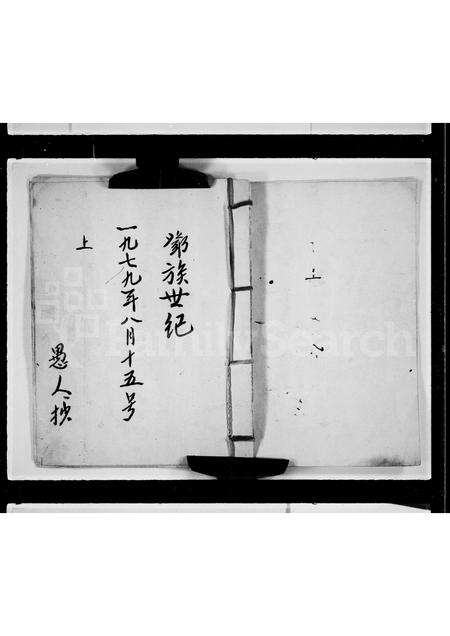 族世纪
一九七九年八月十五号
上
愚人抄
FamilySearch